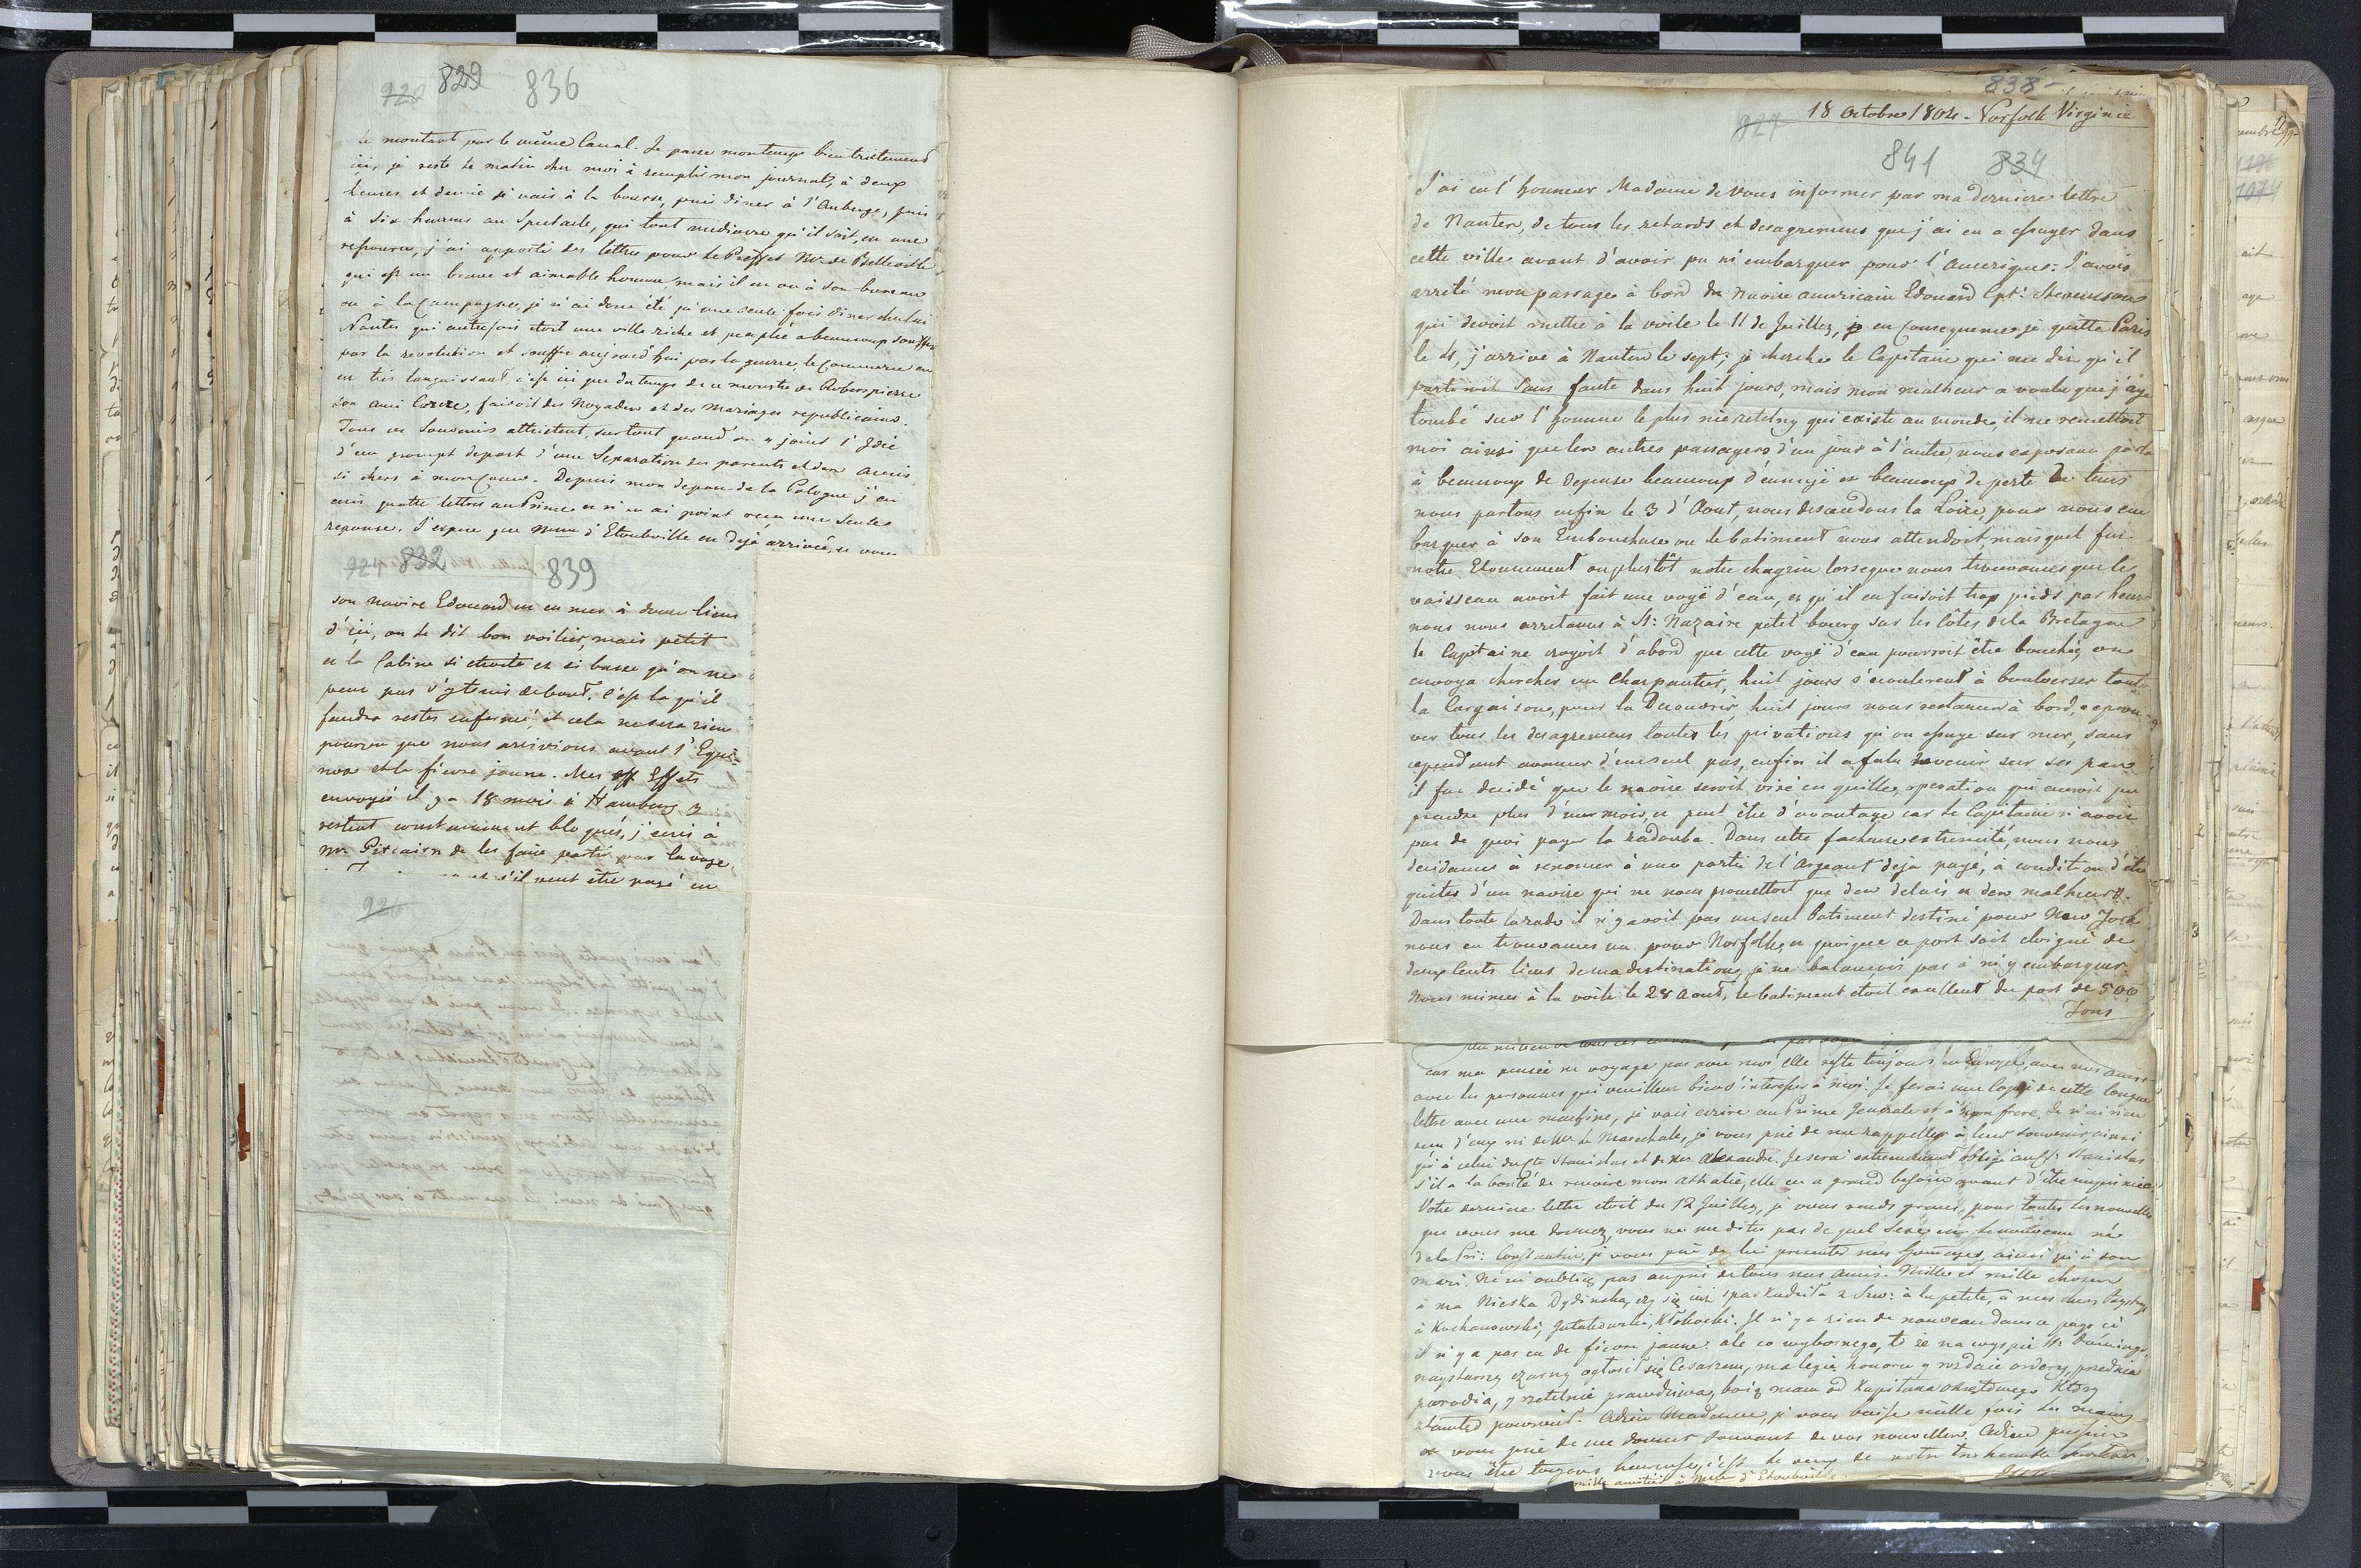 920 829 836
le montant par le même Canal. Je passe mon temps bien tristement
ici, je reste le matin chez moi à remplir mon journal, à deux
heures et demie je vais à la bourse, puis diner à l'Auberge, puis
à six heures au Spectacle, qui tout mediocre qu'il soit, est une
ressource, j'ai apporté des lettres pour le Prefet Mr. de Belleville
qui est un brave et aimable homme, mais il est ou à son bureau
ou à la Campagne, je n'ai donc été qu'une seule fois diner chez lui
Nantes qui autrefois etoit une ville riche et peuplée a beaucoup souffert
par la revolution et souffre aujourd'hui par la guerre, le Commerce en
est très languissant, c'est ici que du temps de ce monstre de Roberspierre
son ami Carere, faisoit des Noyades et des Mariages republicains.
Tous ces Souvenirs attristent, surtout quand on y joint l'Idée
d'un prompt depart d'une Separation des parents et des amis
si chers à mon Coeur. Depuis mon depart de la Pologne j'ai
ecris quatre lettres au Prince et n'en ai point recu une Seule
reponse. J'espere que Mme d'Etoubville est deja arrivée, et vous
924 832 839
son navire Edouard est en mer à douze lieus
d'ici, on le dit bon voilier, mais petit
et la Cabine si etroite et si basse qu'on ne
peut pas s'y tenir debout. C'est la qu'il
faudra rester enfermé, et cela ne sera rien
pourvu que nous arrivions avant l'Equi-
nox et la fievre jaune. Mes eff Effets
envoyés il y a 18 mois à Hamburg y
restent constamment bloqués, j'ecris à
Mr. Pitcairn de les faire partir par la voye
s'il veut être payé en
926
838
18 Octobre 1804. Norfolk Virginie
927
841 834
J'ai eu l'honneur Madame de vous informer par ma derniere lettre
de Nantes, de tous les retards et desagremens que j'ai eu a essuyer dans
cette ville avant d'avoir pu m'embarquer pour l'Amerique: J'avois
arreté mon passage à bord du navire americain Edouard Cpt: Stevensons
qui devoit mettre à la voile le 11 de Juillet, en Consequence je quitte Paris
le 4, j'arrive à Nantes le sept; je cherche le Capitaine qui me dit qu'il
partiroit sans faute dans huit jours, mais mon malheur a voulu que j'aye
tombé sur l'homme le plus nierzetelny qui existe au monde, il me remettoit
moi ainsi que les autres passagers d'un jour à l'autre, nous exposant par la
à beaucoup de depense beaucoup d'ennuye et beaucoup de perte de tems
nous partons enfin le 3 d'Aout, nous descendons la Loire, pour nous em
barquer à son Embouchure ou le batiment nous attendoit mais quel fut
notre Etonnement ou plustôt notre chagrin lorsque nous trouvames que le
vaisseau avoit fait une voye d'eau, et qu'il en faisoit trop pieds par heure
nous nous arretames à St: Nazaire petit bourg sur les Côtes de la Bretagne
le Capitaine croyoit d'abord que cette voye d'eau pourroit être bouchée, on
envoya chercher un Charpentier, huit jours s'ecoulerent à bouleverser toute
la Cargaison, pour la Decouvrir, huit jours nous restames à bord, a eprou-
ver tous les desagremens toutes les privations qu'on essuye sur mer, sans
cependant avancer d'un seul pas, enfin il a falu revenir sur ses pas
il fut decidé que le navire seroit viré en quille, operation qui auroit pu
prendre plus d'un mois, et peut être d'avantage car le Capitaine n'avoit
pas de quoi payer la radoube. Dans cette facheuse extremité, nous nous
decidames à renoncer à une partie de l'Argeant deja payé, à condition d'être
quites d'un navire qui ne nous promettoit que des delais et des malheurs.
Dans toute la rade il n'y avoit pas un seul batiment destiné pour New York
nous en trouvames un pour Norfolk, et quoique ce port soit eloigné de
deux Cents lieus de ma destination, je ne balancois pas à m'y embarquer.
Nous mimes à la voile le 28 Aout, le batiment etoit excellent du port de 500
Tons
car ma pensée ne voyage pas avec moi elle reste toujours en Europe, avec mes amis
avec les personnes qui veuillent bien s'interesser à moi. Je ferai une Copie de cette longue
lettre avec une machine, je vais ecrire au Prince Generale et à mon frere. Je n'ai rien
recu d'eux ni de Mr le Marechale, je vous prie de me rappeller à leur souvenir, ainsi
qu'à celui du Cte Stanislas et de Mr Alexandre. Je serai extremement obligé au Cte Stanislas
s'il a la bonté de revoire mon Athalie, elle en a grand besoin avant d'être imprimée.
Votre derniere lettre etoit du 12 Juillet, je vous rends graces, pour toutes les nouvelles
que vous me donnez, vous ne me dites pas de quel Sexe est le nouveau né
de la Pri: Constantin, je vous prie de lui presenter mes homages, ainsi qu'à son
mari. Ne m'oubliez pas auprès de tous mes amis. Mille et mille choses
à ma Nieska Dydinska, czy się iuz à la petite, à mes chers
à Kochanowski, Gutakowski, Kłokocki. Il n'y a rien de nouveau dans ce pays ci
il n'y a pas eu de fievre jaune: ale co wybornego, to że na wyspie St: Domingo
naystarszy czarny ogłosił się Cesarzem, ma legią honoru y rozdaie ordery, przednia
parodia, y rzetelnie prawdziwa, bo ią mam od Kapitana okrętowego Ktory
ztamtąd powrocił. Adieu Madame, je vous baise mille fois les mains
et vous prie de me donner souvent de vos nouvelles. Adieu puissiez
vous être toujours heureuse, c'est le voeu de votre tres humble serviteur
mille amitiés à Mme d'Etoubville